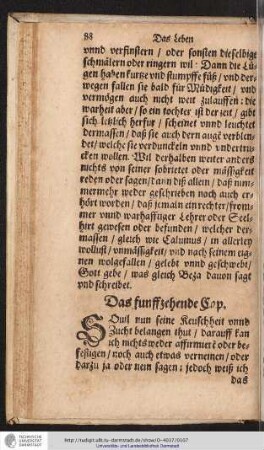 88 Das Leben
vnnd verfinstern / oder sonsten dieselbige
schmälern oder ringern wil: Dann die Lü-
gen haben kurtze vnd stumpffe füß / vnd der-
wegen fallen sie bald für Müdigkeit / vnd
vermögen auch nicht weit zulauffen: die
warheit aber / so ein tochter ist der zeit / gibt
sich letzlich herfür / scheinet vnnd leuchtet
dermassen / daß sie auch dern augē verblen-
det / welche sie verdunckeln vnnd vndertru-
cken wollen. Wil derhalben weiter anders
nichts von seiner sobrietet oder mässigkeit
reden oder sagen / dann diß allein / daß nim-
mermehr weder geschrieben noch auch er-
hört worden / daß jemain ein rechter / from-
mer vnnd warhafftiger Lehrer oder Seel-
hirt gewesen oder befunden / welcher der-
massen / gleich wie Caluinus / in allerley
wollust / vnmässigkeit / vnd nach seinem eig-
nen wolgefallen / gelebt vnnd geschwebt /
Gott gebe / was gleich Beza dauon sagt
vnd schreibet.
Das funffzehende Cap.
SOuil nun seine Keuschheit vnnd
Zucht belangen thut / darauff kan
ich nichts weder affirmierē oder be-
festigen / noch auch etwas verneinen / oder
darzu ja oder nein sagen: jedoch weiß ich
das
TECHNISCHE UNIVERSITÄT DARMSTADT
Universitäts- und Landesbibliothek Darmstadt